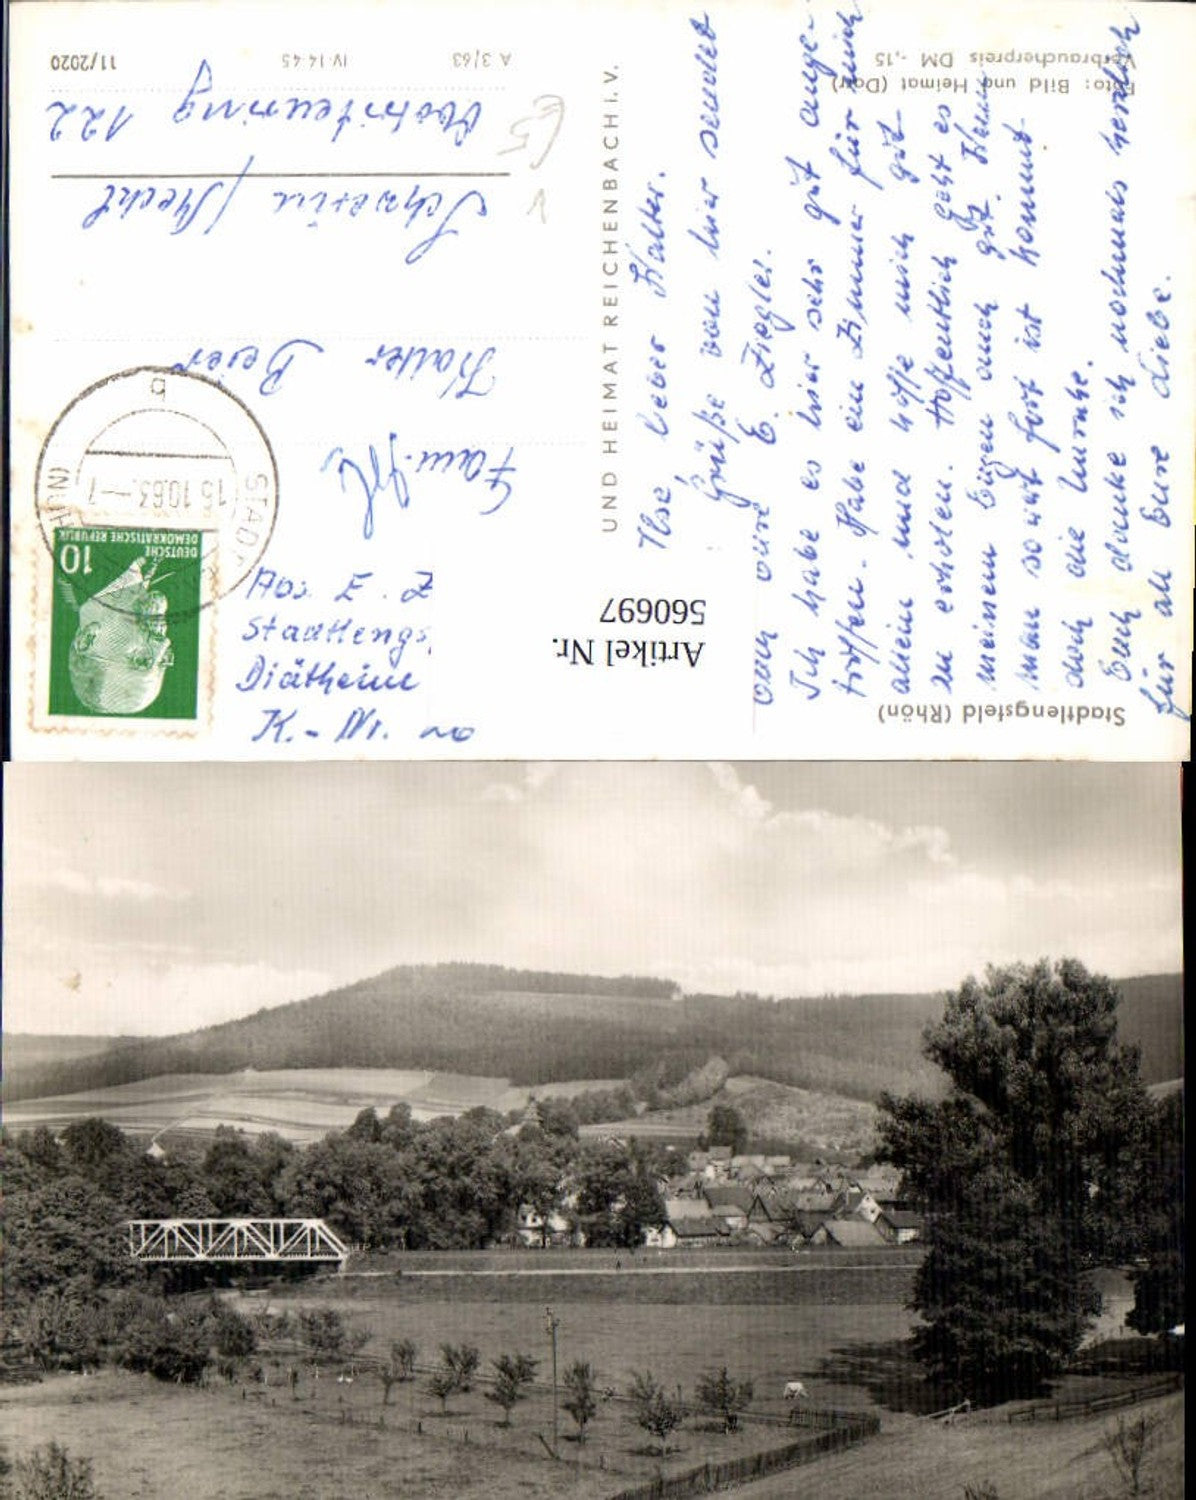 Stadtlengsfeld (Rhön)
Foto: Bild und Heimat (Darr)
Verbraucherpreis DM -,15
UND HEIMAT REICHENBACH i. V.
A 3/63 IV-14-45 11/2020
Artikel Nr.
560697
DEUTSCHE
DEMOKRATISCHE REPUBLIK
10
STADT
15.10.63.--7
b
Abs. E. Z
Stadtlengs
Diätheim
K.-Nr.
Fam.
Walter Beier
Schwerin /Meckl
122
Ilse, lieber Walter.
Grüße von hier sendet
Euch eure E. Ziegler.
Ich habe es hier sehr gut ange-
troffen. Habe ein Zimmer für mich
allein und hoffe mich gut
zu erholen. Hoffentlich geht es
meinem Eugen auch gut. Wenn
man so weit fort ist kommt
doch die Unruhe.
Euch danke ich nochmals herzlich
für all Eure Liebe.